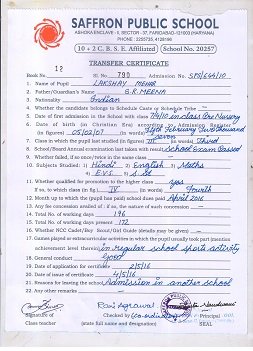 SAFFRON PUBLIC SCHOOL
ASHOKA ENCLAVE - II, SECTOR - 37, FARIDABAD-121003 (HARYANA)
PHONE : 2225735, 4128198
10 + 2 C. B. S. E. Affiliated School No. 20257
TRANSFER CERTIFICATE
Book No. 12 Sl. No. 790 Admission No. SPS/644/10
1. Name of Pupil LAKSHAY MEHAR
2. Father's/Guardian's Name B.R. MEENA
3. Nationality Indian
4. Whether the candidate belongs to Schedule Caste or Schedule Tribe
5. Date of first admission in the School with class 7/4/10 in class Pre Nursery
6. Date of birth (in Christian Era) according to Admission Register
(in figures) 05/02/07 (in words) February Two thousand
Seven
7. Class in which the pupil last studied (in figures) III (in words) Third
8. School/Board Annual examination last taken with result School exam Passed
9. Whether failed, if so once/twice in the same class
10. Subjects Studied : 1. Hindi 2. English 3. Maths
4. E.V.S. 5. S.St
11. Whether qualified for promotion to the higher class yes
If so, to which class (in fig.) IV (in words) Fourth
12. Month up to which the pupil has paid school dues paid April 2016
13. Any fee concession availed of : if so, the nature of such concession
14. Total No. of working days 196
15. Total No. of working days present 172
16. Whether NCC Cadet/Boy Scout/Girl Guide (details may be given)
17. Games played or extracurricular activities in which the pupil usually took part (mention
achievement level therein) in regular school sports activity
18. General conduct Good
19. Date of application for certificate 2/5/16
20. Date of issue of certificate 4/5/16
21. Reasons for leaving the school Admission in another school
22. Any other remarks
Signature of
Class teacher
Ravi Agrawal
Checked by
(state full name and designation)
Principal
SEAL